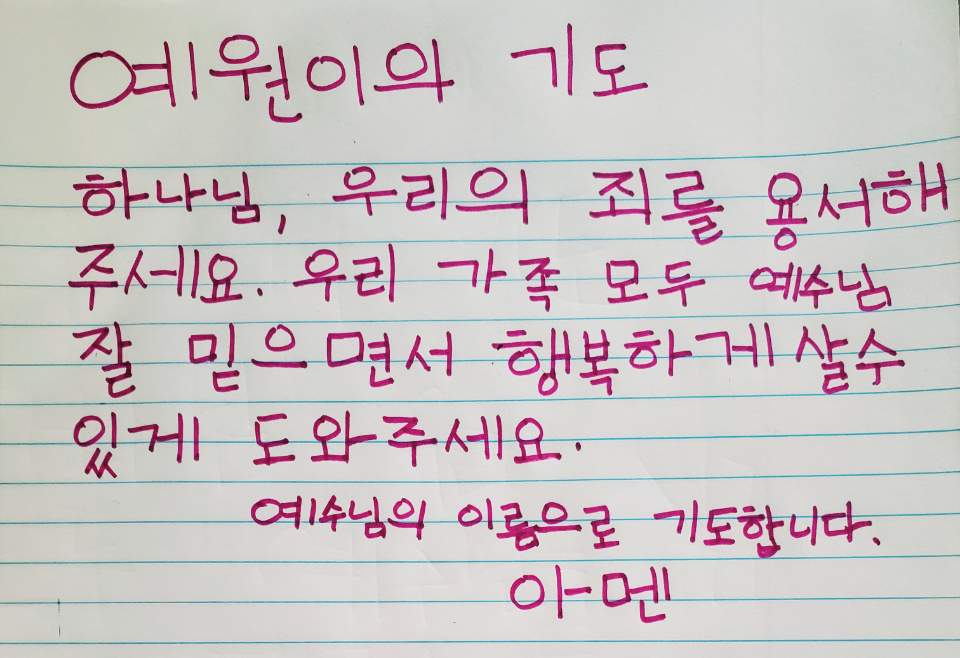 예원이와 기도
하나님, 우리의 죄를 용서해
주세요. 우리 가족 모두 예수님
잘 믿으면서 행복하게 살수
있게 도와주세요.
예수님의 이름으로 기도합니다.
아멘